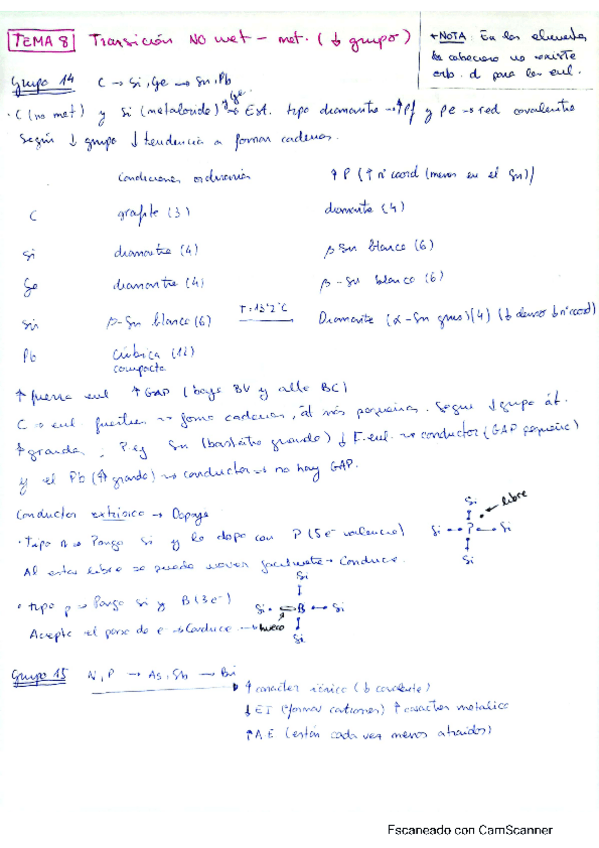 TEMA 8 Transición NO met - met. (↓ grupo)
* NOTA: En los elementos
de cabecera no existe
orb. d para los enl.
Grupo 14 C → Si, Ge → Sn, Pb
· C (no met) y Si (metaloide) y Ge → Est. tipo diamante → ↑Pf y Pe → red covalente
Según ↓ grupo ↓ tendencia a formar cadenas.
Condiciones ordinarias ↑ P (↑ nº coord (menos en el Sn))
C grafito (3) diamante (4)
Si diamante (4) β Sn blanco (6)
Ge diamante (4) β - Sn blanco (6)
Sn β-Sn blanco (6) T = 13'2°C Diamante (α-Sn gris) (4) (↓ denso ↓ nº coord)
Pb Cúbica (12)
compacta
↑ fuerza enl ↑ GAP (baja BV y alta BC)
C → enl. fuertes → forma cadenas, át más pequeños. Según ↓ grupo át.
↑ grandes, P.ej Sn (bastante grande) ↓ F. enl. → conductor (GAP pequeño)
y el Pb (↑ grande) → conductor → no hay GAP.
Conductor extrínseco → Dopaje
· Tipo n → Pongo Si y lo dopo con P (5e⁻ valencia)
Al estar libre se puede mover fácilmente → Conduce.
Si
libre
Si P Si
Si
· tipo p → Pongo Si y B (3e⁻)
Acepte el paso de e⁻ → Conduce
Si
Si B Si
hueco
Si
Grupo 15 N, P → As, Sb → Bi
↑ caracter iónico (↓ covalente)
↓ EI (formar cationes) ↑ caracter metálico
↑ A E (están cada vez menos atraidos)
Escaneado con CamScanner